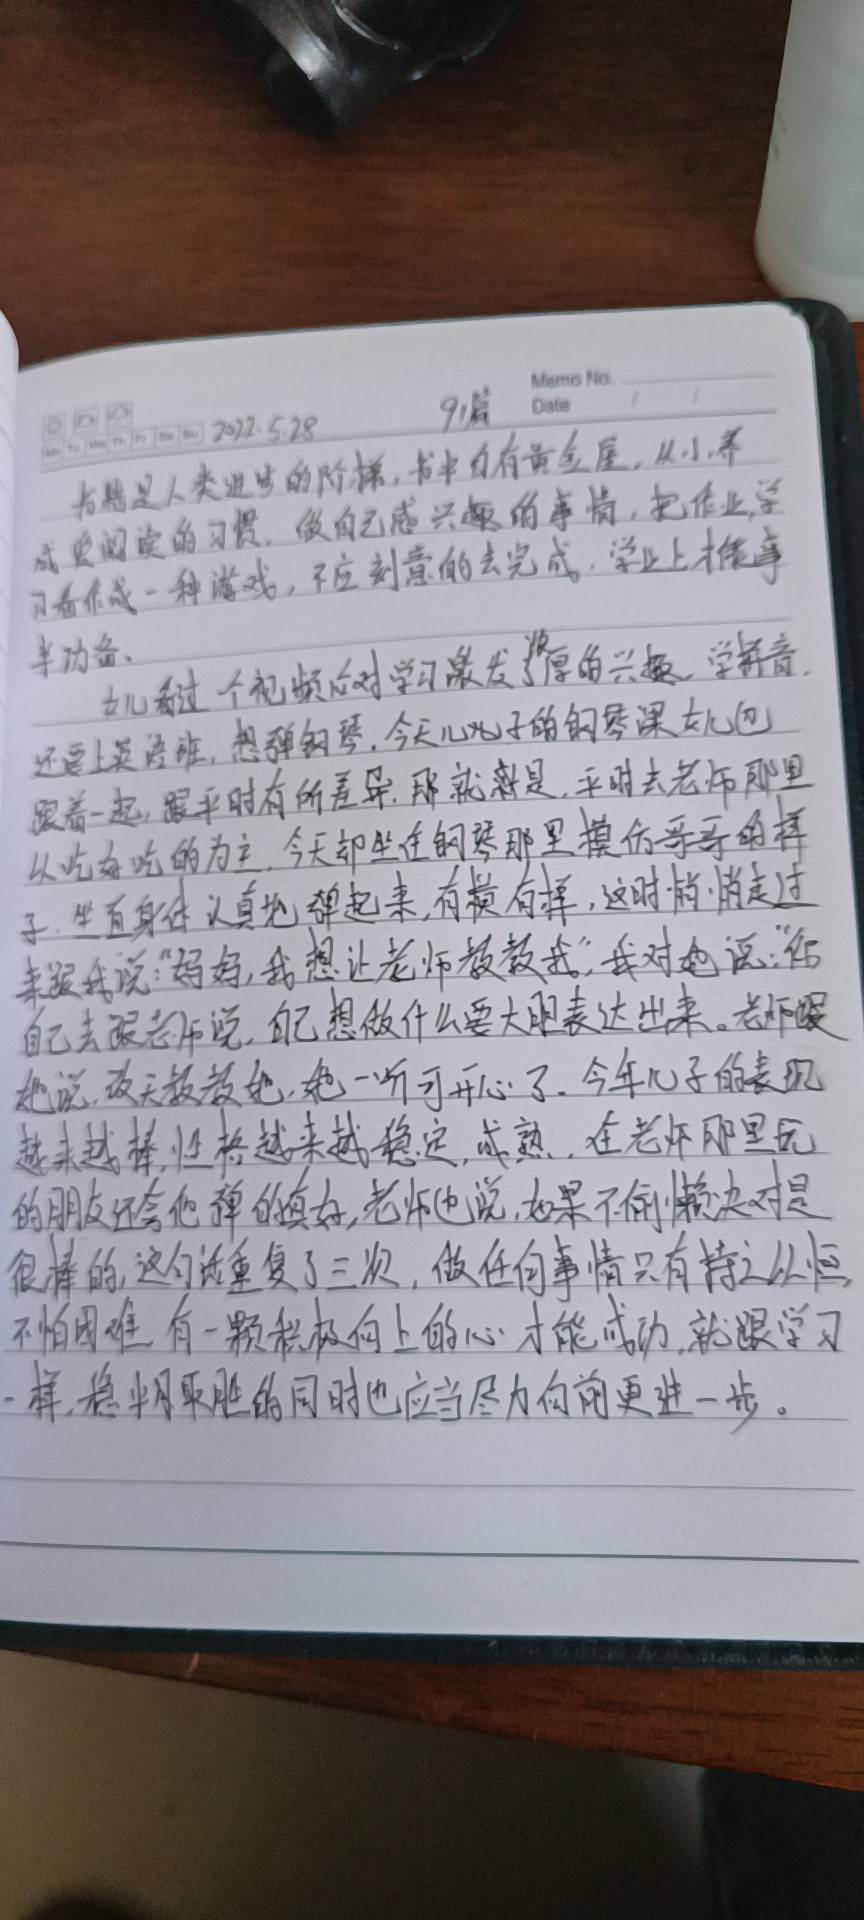 Memo No.
Date / /
Mo Tu We Th Fr Sa Su 2022.5.28 91篇
书籍是人类进步的阶梯，书中自有黄金屋，从小养
成爱阅读的习惯，做自己感兴趣的事情，把作业，学
习看作成一种游戏，不应刻意的去完成，学业上才能事
半功备、
女儿看过一个视频后对学习激发了浓厚的兴趣，学拼音，
还要上英语班，想弹钢琴，今天儿子的钢琴课女儿
跟着一起，跟平时有所差异，那就是，平时去老师那里
以吃好吃的为主，今天却坐在钢琴那里模仿哥哥的样
子，坐直身体认真地弹起来，有模有样，这时悄悄走过
来跟我说：“妈妈，我想让老师教教我”，我对她说：“你
自己去跟老师说，自己想做什么要大胆表达出来。老师跟
她说，改天教教她，她一听可开心了。今年儿子的表现
越来越棒，性格越来越稳定，成熟，在老师那里玩
的朋友还夸他弹的真好，老师也说，如果不偷懒决对是
很棒的，这句话重复了三次，做任何事情只有持之以恒，
不怕困难，有一颗积极向上的心，才能成功，就跟学习
一样，稳中取胜的同时也应当尽力向前更进一步。